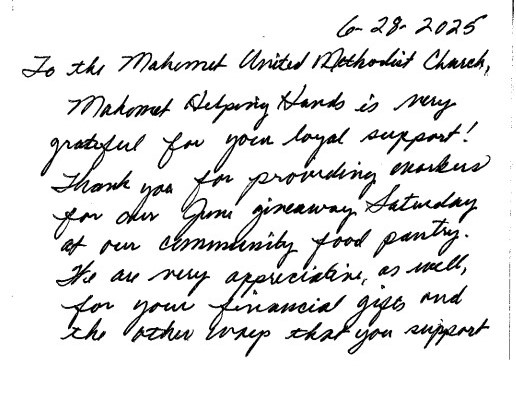 6-28-2025
To the Mahomet United Methodist Church,
Mahomet Helping Hands is very
grateful for your loyal support!
Thank you for providing workers
for our June giveaway Saturday
at our community food pantry.
We are very appreciative, as well,
for your financial gifts and
the other ways that you support